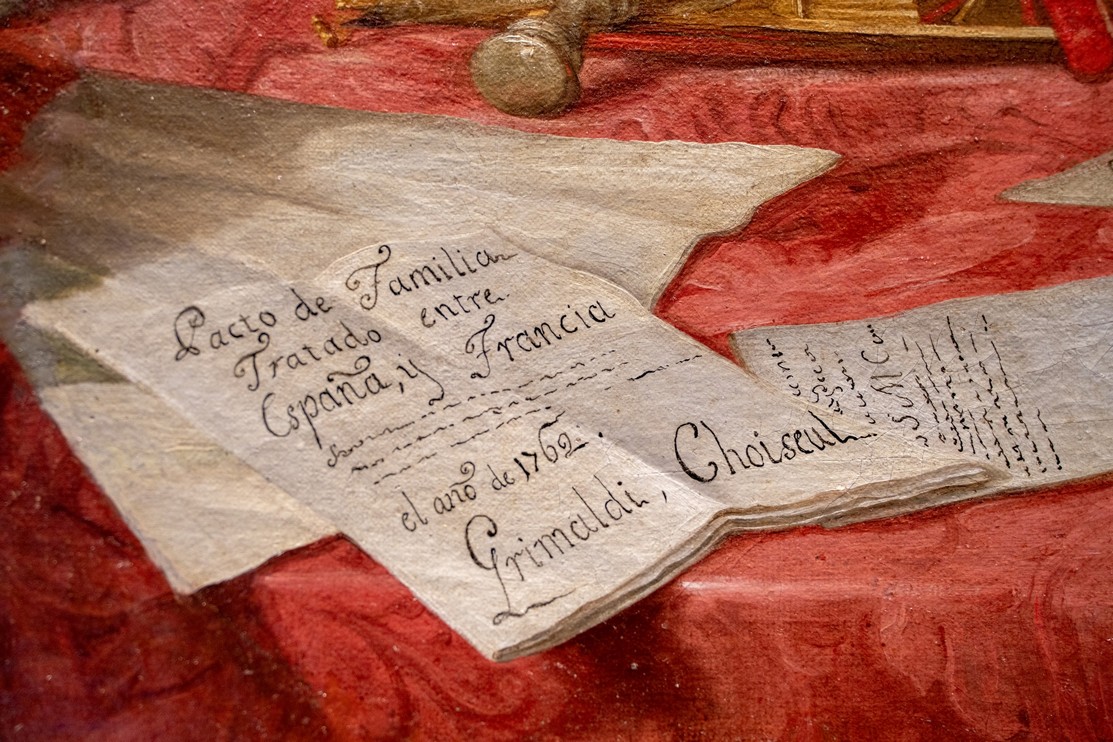 Pacto de Familia
Tratado entre
España, y Francia
el año de 1762.
Grimaldi, Choiseul